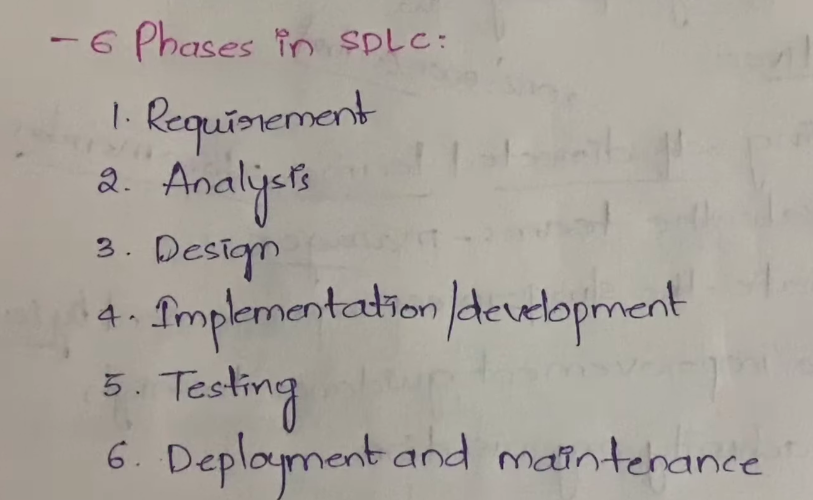 - 6 Phases in SDLC:
1. Requirement
2. Analysis
3. Design
4. Implementation/development
5. Testing
6. Deployment and maintenance